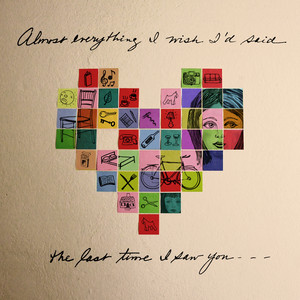 Almost everything I wish I'd said
the last time I saw you - - -